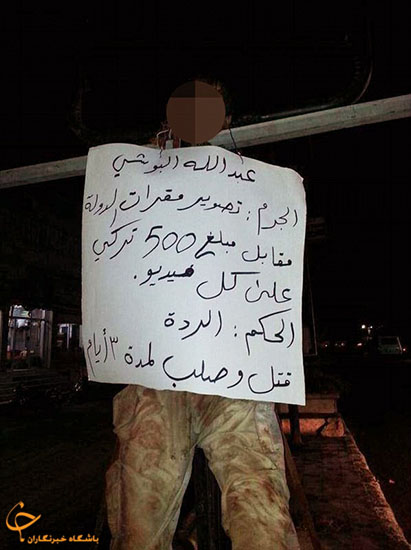 عبدالله البوشي
الجرم: تصوير مقرات الدولة
مقابل مبلغ 500 تركي
على كل فيديو.
الحكم: الردة
قتل وصلب لمدة ٣ أيام
باشگاه خبرنگاران